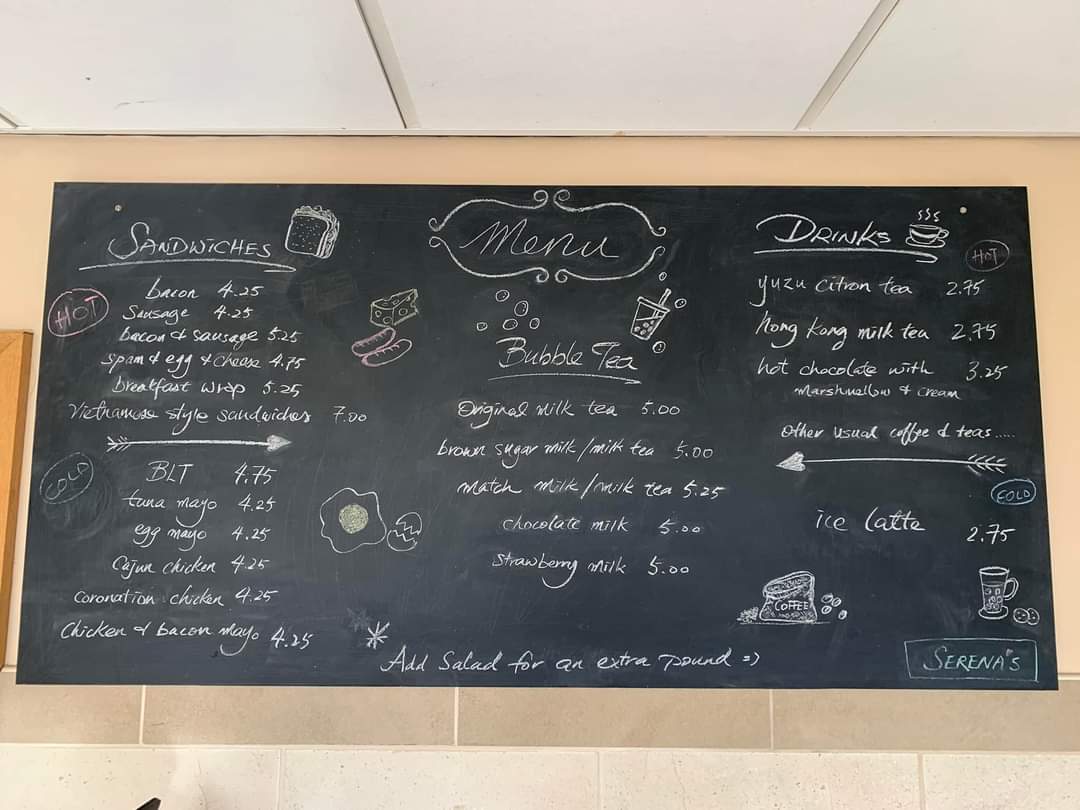 Menu
SANDWICHES
HOT
bacon 4.25
Sausage 4.25
bacon & sausage 5.25
spam & egg & cheese 4.75
breakfast wrap 5.25
Vietnamese style sandwiches 7.00
COLD
BLT 4.75
tuna mayo 4.25
egg mayo 4.25
Cajun chicken 4.25
coronation chicken 4.25
Chicken & bacon mayo 4.25
Bubble Tea
Original milk tea 5.00
brown sugar milk/milk tea 5.00
match milk/milk tea 5.25
chocolate milk 5.00
Strawberry milk 5.00
DRINKS
HOT
yuzu citron tea 2.75
hong kong milk tea 2.75
hot chocolate with 3.25
marshmellow & cream
Other usual coffee & teas.....
COLD
ice latte 2.75
COFFEE
Add Salad for an extra pound =)
SERENA'S